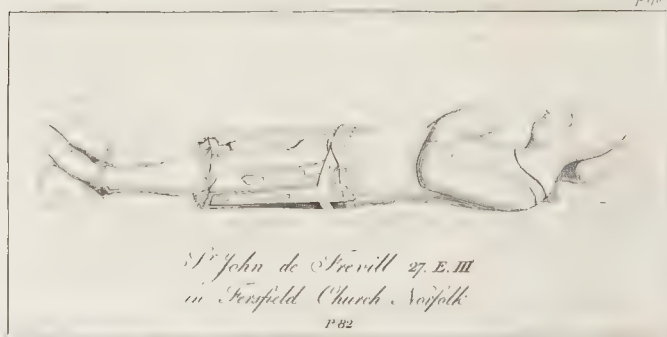 Sr John de Frevill 27. E. III
in Fersfield Church Norfolk
P 82